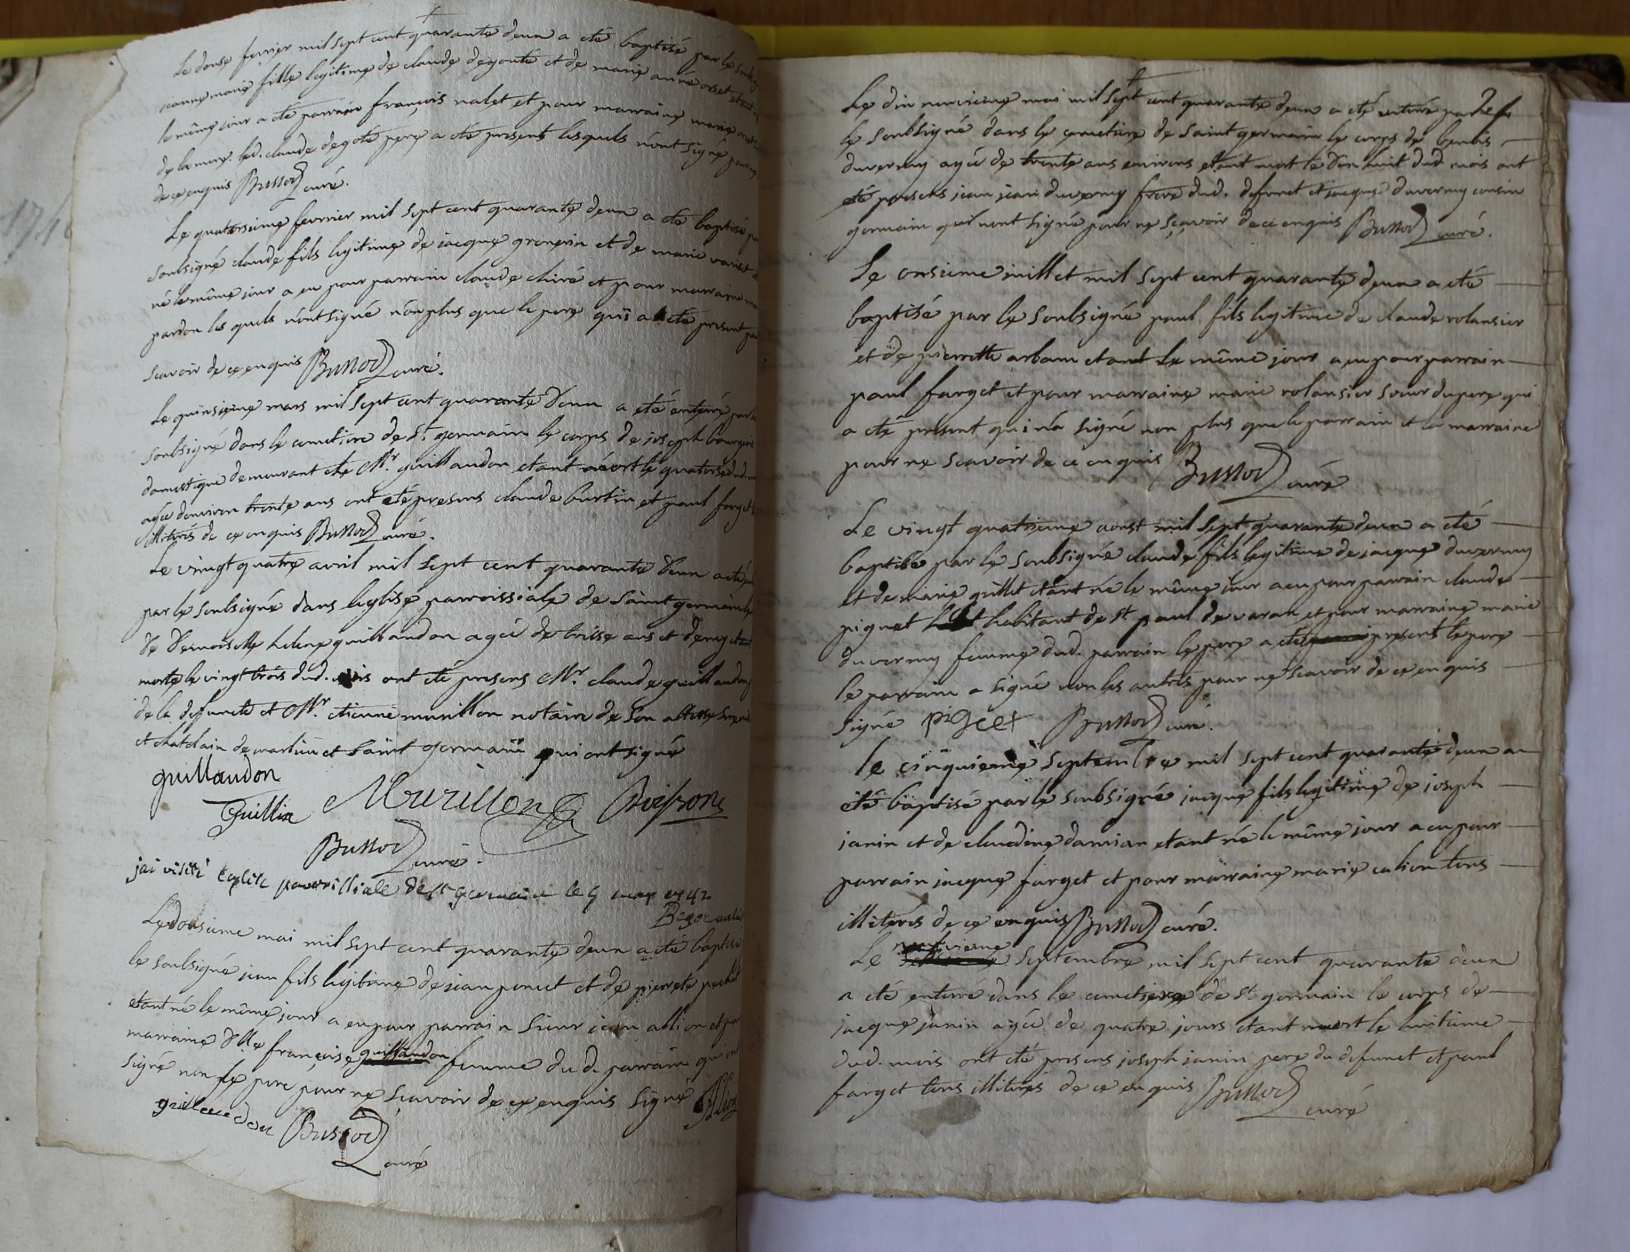 Le douse fevrier mil sept cent quarante d'eun a eté baptisé par le soubs
marie fille legitime de claude degouté et de marie
le même jour a eté parrain françois nalet et pour marraine marie
de la mere. led. claude degoté pere a eté present lesquels n'ont signé pour
de ce enquis Bussod curé.
Le quatorsieme fevrier mil sept cent quarante deun a eté baptisé
soubsigné claude fils legitime de jacque et de marie
né le même jour a eu pour parrain claude et pour marraine
pardon les quels n'ont signé non plus que le pere qui a eté present
scavoir de ce enquis Bussod curé.
Le quinsieme mars mil sept cent quarante d'eun a eté enterré par
soubsigné dans le cemetiere de St. germain le corps de joseph
domestique demeurant ché Mr. guillaudon etant mort le quatorse dud
agée d'environ trente ans ont eté presens claude burtin et paul farget
illiterés de ce enquis Bussod curé.
Le vingt quatre avril mil sept cent quarante d'eun a eté
par le soubsigné dans leglise parroissiale de saint germain le
de Demoiselle helene guillaudon agée de treise ans et demy etant
morte le vingt trois dud. mois ont eté presens Mr. claude guillaudon
de la defuncte et Mr. etienne murillon notaire de son altesse
et chatelain de marlieu et saint germain qui ont signé
guillaudon
Guillin Murillon
Bussod curé.
jai visité Eglise parroissiale de St Germain le 5 1742
Le dousieme mai mil sept cent quarante deun a eté baptisé
le soubsigné jean fils legitime de jean poncet et de pierrete
etant né le même jour a eu pour parrain sieur jean allion et pour
marraine Dlle françoise guillaudon femme du d. parrain qui ont
signé non le pere pour ne scavoir de ce enquis signé Allion
guillaudon Bussod
curé
Le dix neuvieme mai mil sept cent quarante deun a eté enterré par
le soubsigné dans le cemetiere de saint germain le corps de benois
duverney agée de trente ans environs etant mort le dix huit dud mois ont
eté presens jean jean duverney frere dud. defunct et jacque duverney cousin
germain qui nont signé pour ne sçavoir de ce enquis Bussod curé.
Le onsieme juillet mil sept cent quarante deun a eté
baptisé par le soubsigné paul fils legitime de claude volansier
et de pierrette arban etant le même jour a eu pour parrain
paul farget et pour marraine marie volansier soeur du pere qui
a eté present qui na signé non plus que le parrain et la marraine
pour ne scavoir de ce enquis Bussod curé
Le vingt quatrieme aoust mil sept quarante deun a eté
baptisé par le soubsigné claude fils legitime de jacque duverney
et de marie guillet etant né le même jour a eu pour parrain claude
pignet habitant de St paul de varax et pour marraine marie
duverney femme dud. parrain le pere a eté present le pere
le parrain a signé non les autres pour ne scavoir de ce enquis
signé Bussod curé.
le cinquieme septembre mil sept cent quarante deun a
eté baptisé par le soubsigné jacque fils legitime de joseph
janin et de claudine damian etant né le même jour a eu pour
parrain jacque farget et pour marraine marie calion tous
illiterés de ce enquis Bussod curé.
Le neuvieme septembre mil sept cent quarante deun
a eté enterré dans le cemetiere de St germain le corps de
jacque janin agée de quatre jours etant mort le huitieme
dud. mois ont eté presens joseph janin pere du defunct et paul
farget tous illiterés de ce enquis Bussod
curé